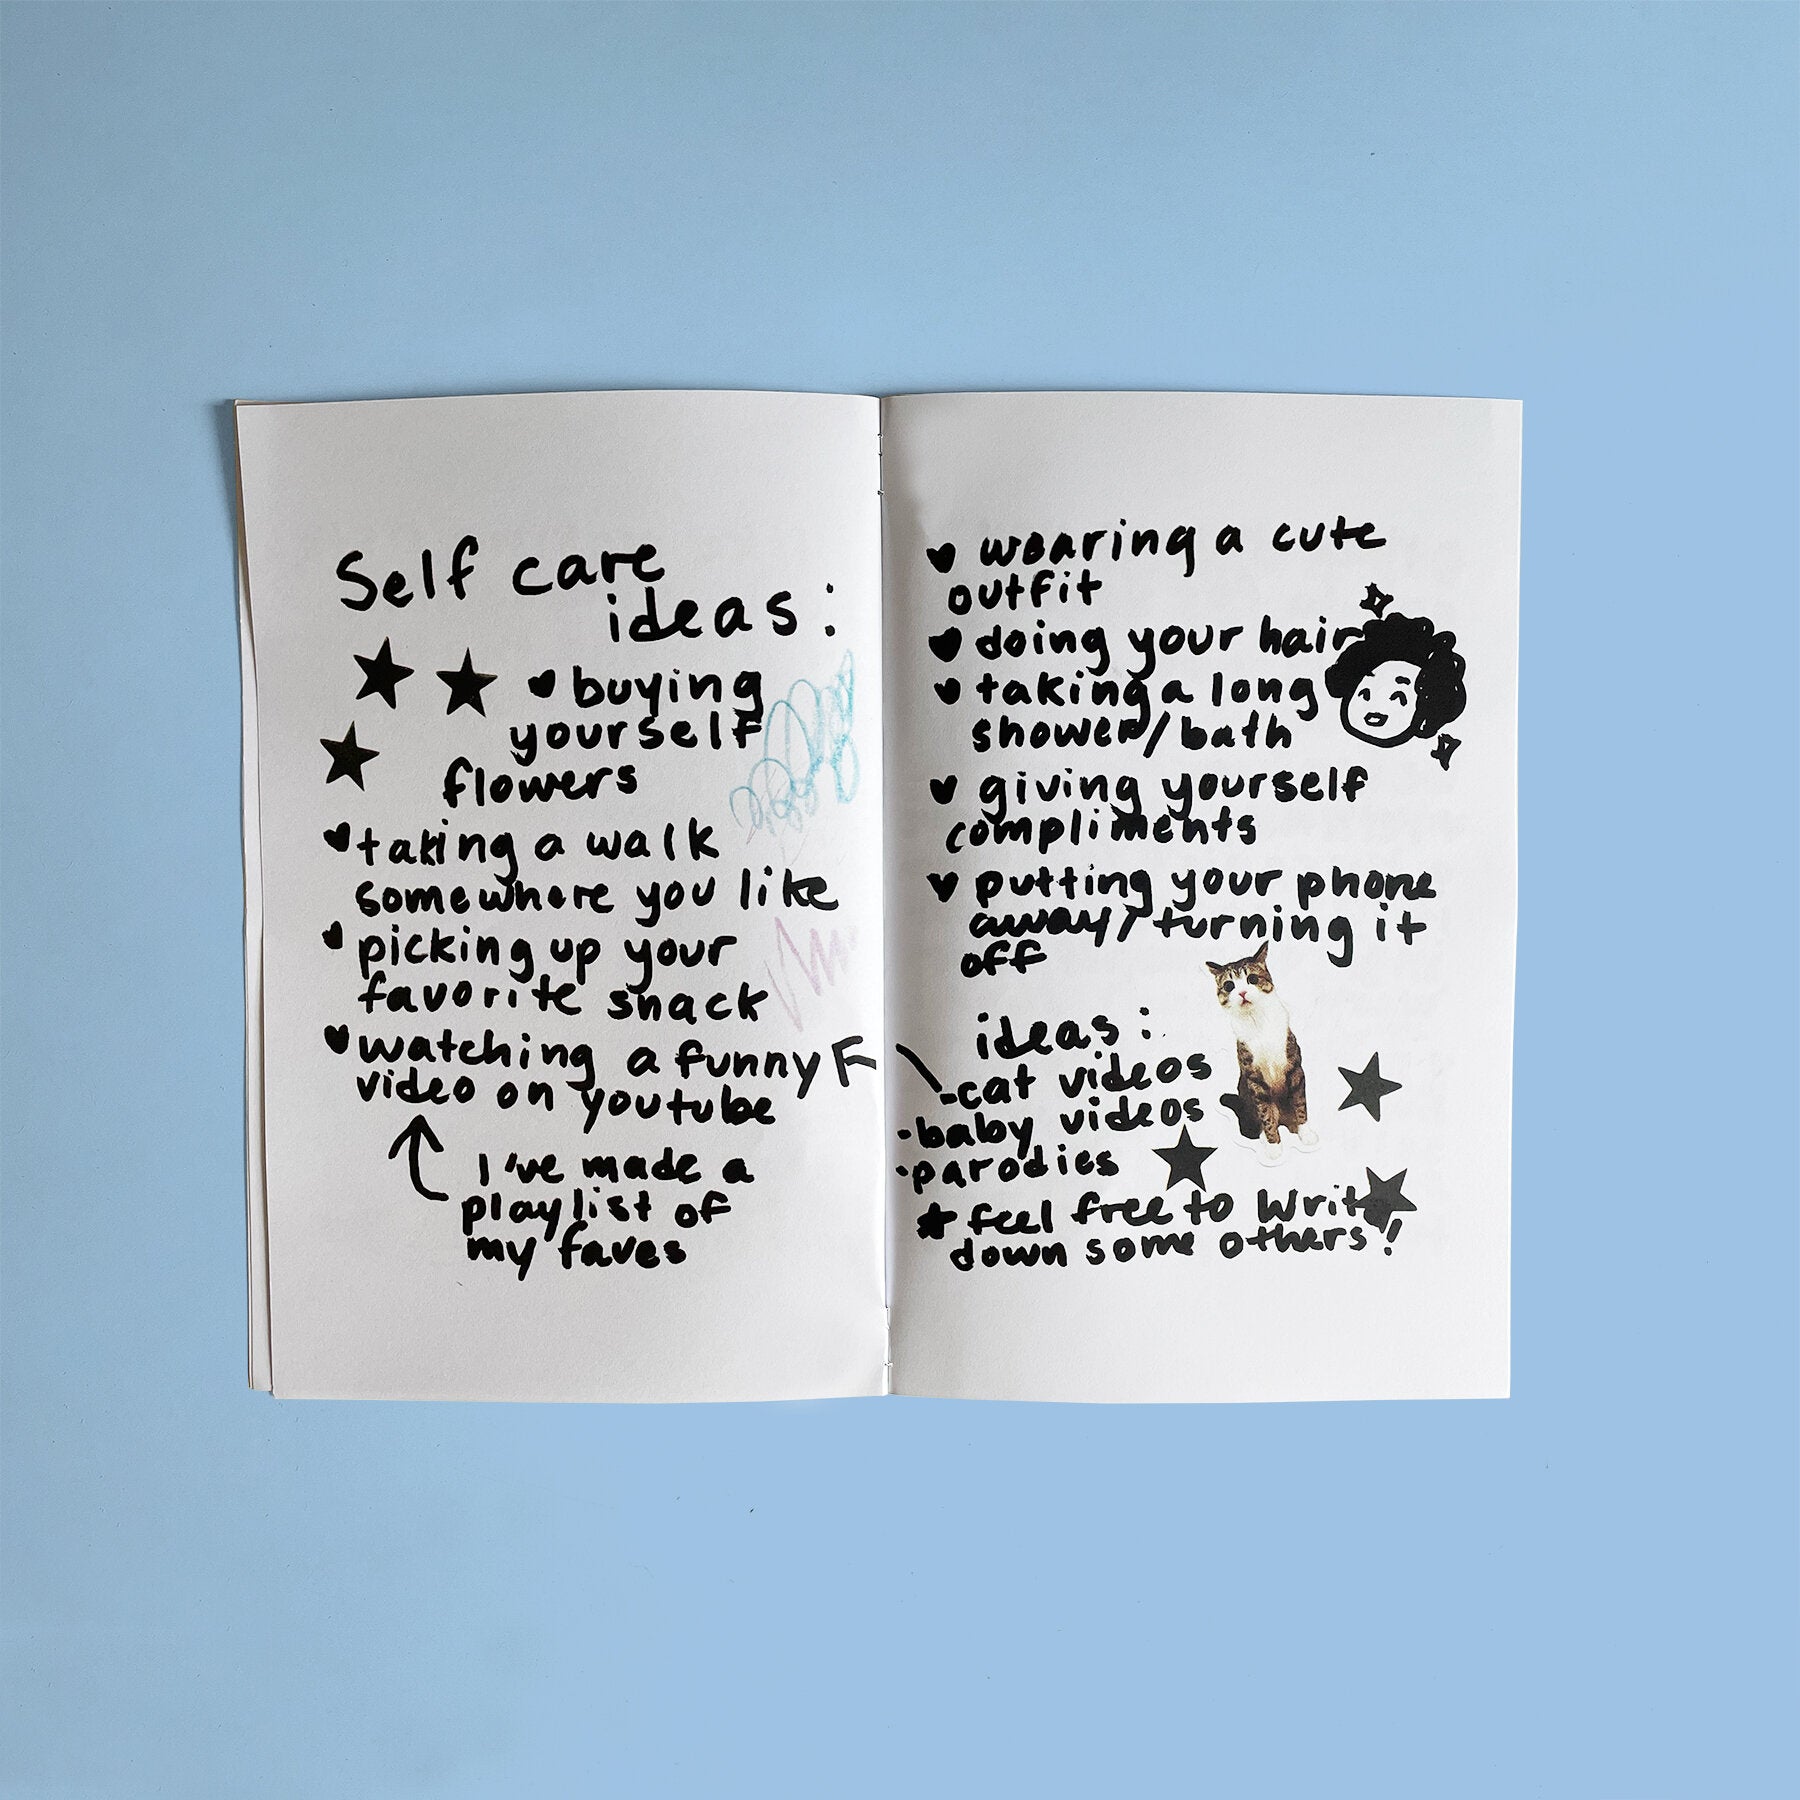 Self care
ideas:
buying
yourself
flowers
taking a walk
somewhere you like
picking up your
favorite snack
watching a funny
video on youtube
I've made a
playlist of
my faves
wearing a cute
outfit
doing your hair
taking a long
shower/bath
giving yourself
compliments
putting your phone
away/turning it
off
ideas:
-cat videos
-baby videos
-parodies
feel free to write
down some others!